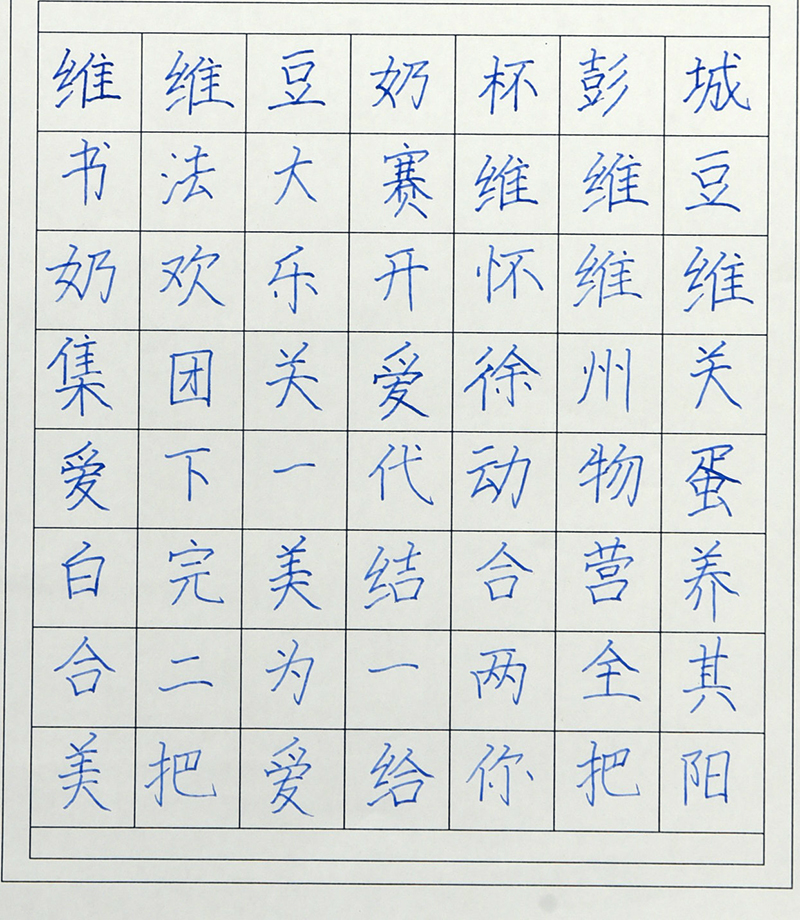 维维豆奶杯彭城
书法大赛维维豆
奶欢乐开怀维维
集团关爱徐州关
爱下一代动物蛋
白完美结合营养
合二为一两全其
美把爱给你把阳